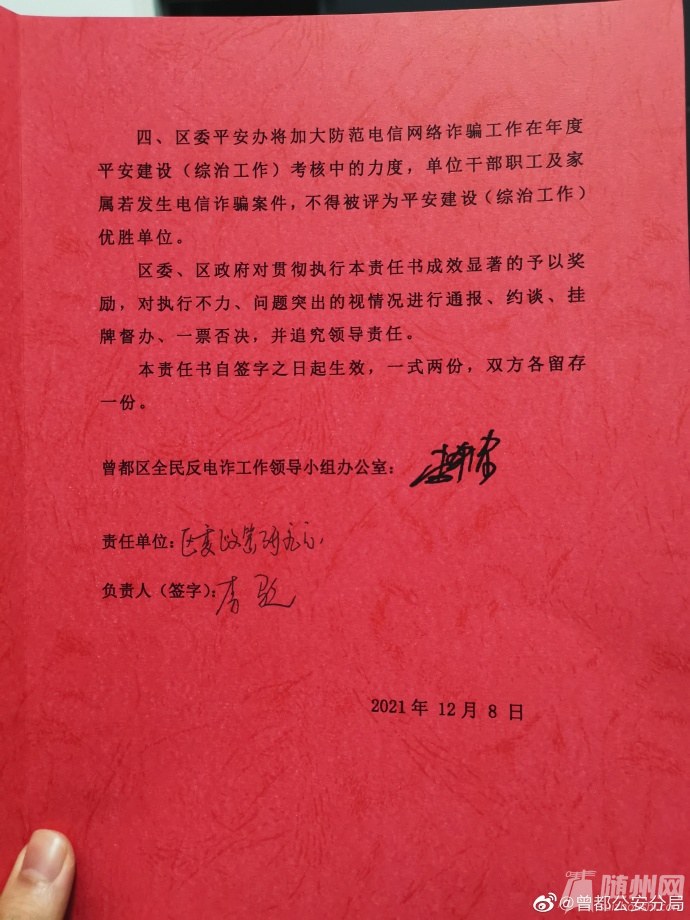 四、区委平安办将加大防范电信网络诈骗工作在年度
平安建设（综治工作）考核中的力度，单位干部职工及家
属若发生电信诈骗案件，不得被评为平安建设（综治工作）
优胜单位。
区委、区政府对贯彻执行本责任书成效显著的予以奖
励，对执行不力、问题突出的视情况进行通报、约谈、挂
牌督办、一票否决，并追究领导责任。
本责任书自签字之日起生效，一式两份，双方各留存
一份。
曾都区全民反电诈工作领导小组办公室：
责任单位：区委政策研究室
负责人（签字）：
2021年 12月 8 日
随州网
@曾都公安分局